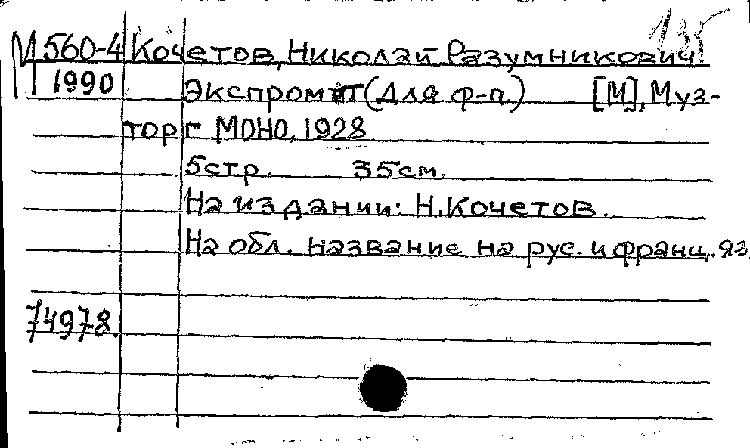 135
М 560-4 Кочетов, Николай Разумникович.
1990 Экспромт (для ф-п.) [М], Муз-
торг МОНО, 1928
5 стр. 35 см.
На издании: Н. Кочетов.
На обл. название на рус. и франц. яз
74978.